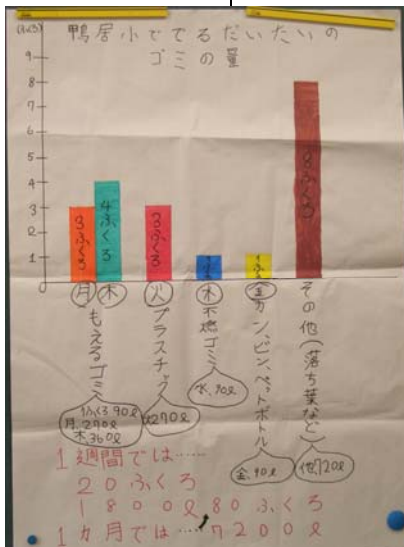 鴨居小ででるだいたいの
ゴミの量
(ふくろ)
9
8
7
6
5
4
3
2
1
3ふくろ
4ふくろ
3ふくろ
1ふくろ
1ふくろ
8ふくろ
月
木
火
木
金
もえるゴミ
プラスチック
不燃ゴミ
カン、ビン、ペットボトル
その他(落ち葉など)
1ふくろ90ℓ
月、270ℓ
木、360ℓ
火270ℓ
水、90ℓ
金、90ℓ
他720ℓ
1週間では……
20ふくろ
1800ℓ 80ふくろ
1カ月では……7200ℓ